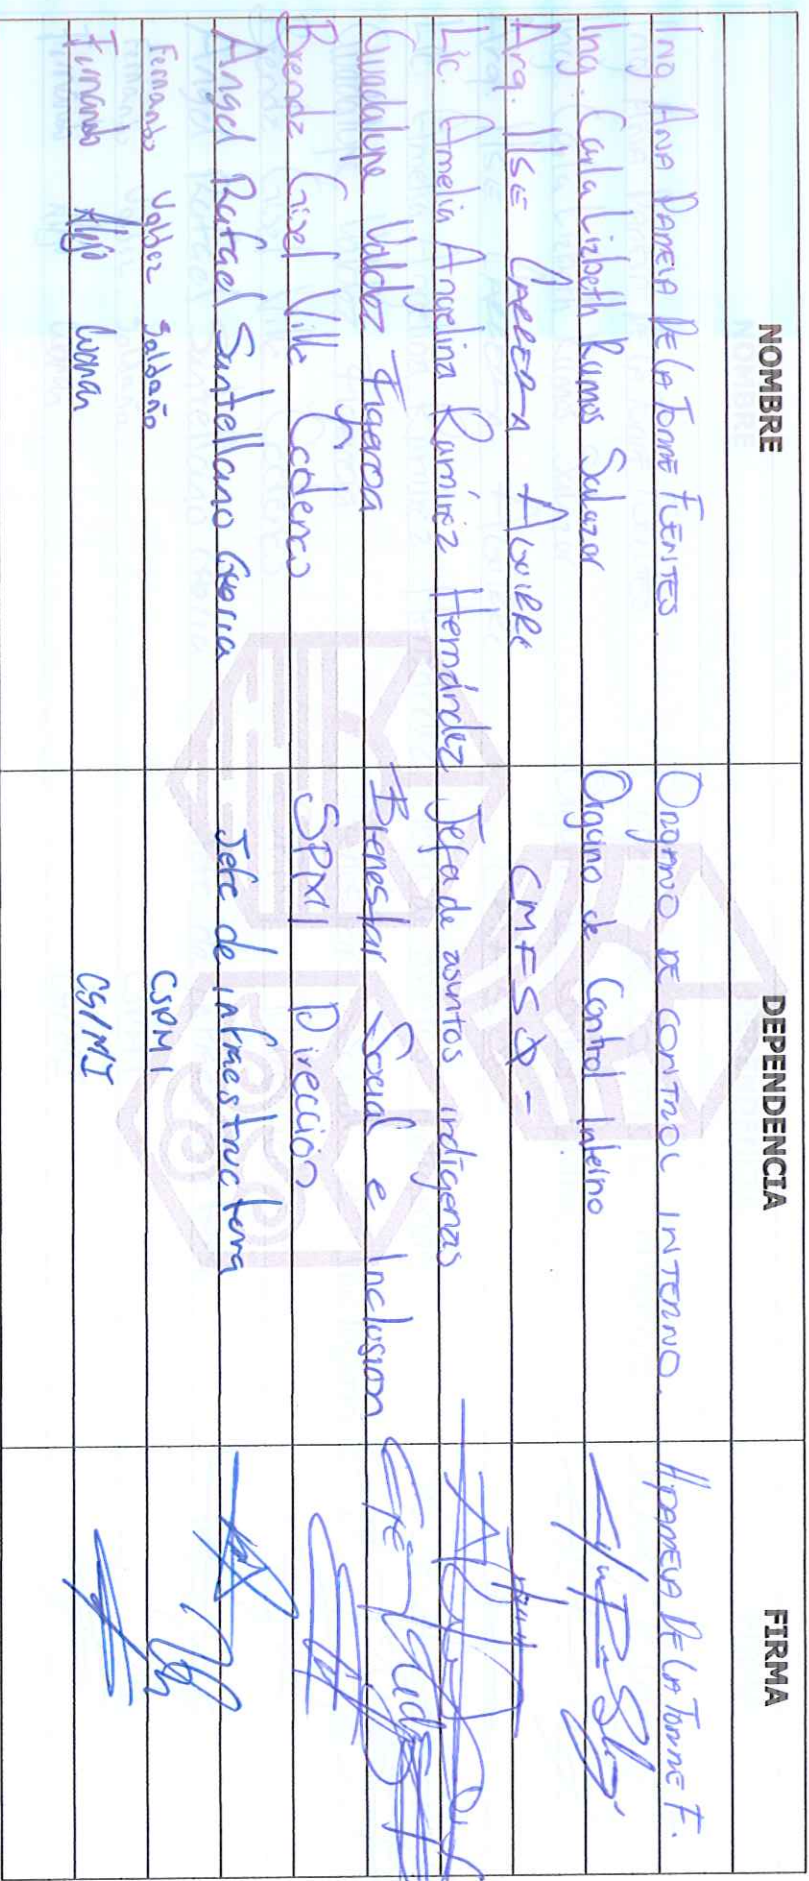 NOMBRE DEPENDENCIA FIRMA
Ing ANA PAMELA DE LA TORRE FUENTES. ORGANO DE CONTROL INTERNO. APAMELA DE LA TORRE F.
Ing. Carla Lizbeth Ramos Salazar Organo de Control Interno
Arq. ILSE CARREDA AGUIRRE CMFSO -
Lic. Amelia Angelina Ramírez Hernández Jefa de asuntos indígenas
Guadalupe Valdez Figueroa Bienestar Social e Inclusion
Brenda Gisel Villa Cadenas SPMI Dirección
Angel Rafael Santellano Jefe de infraestructura
Fernando Valdez Saldaña CSPMI
Fernando